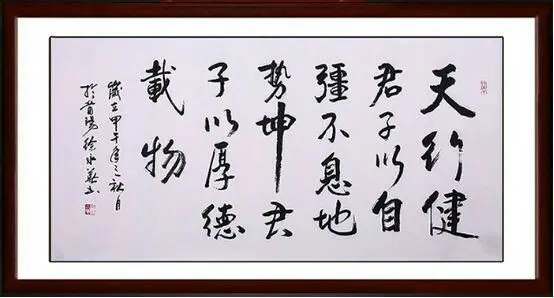 天行健
君子以自
彊不息地
势坤君
子以厚德
載物
歲在甲午年之秋月
於